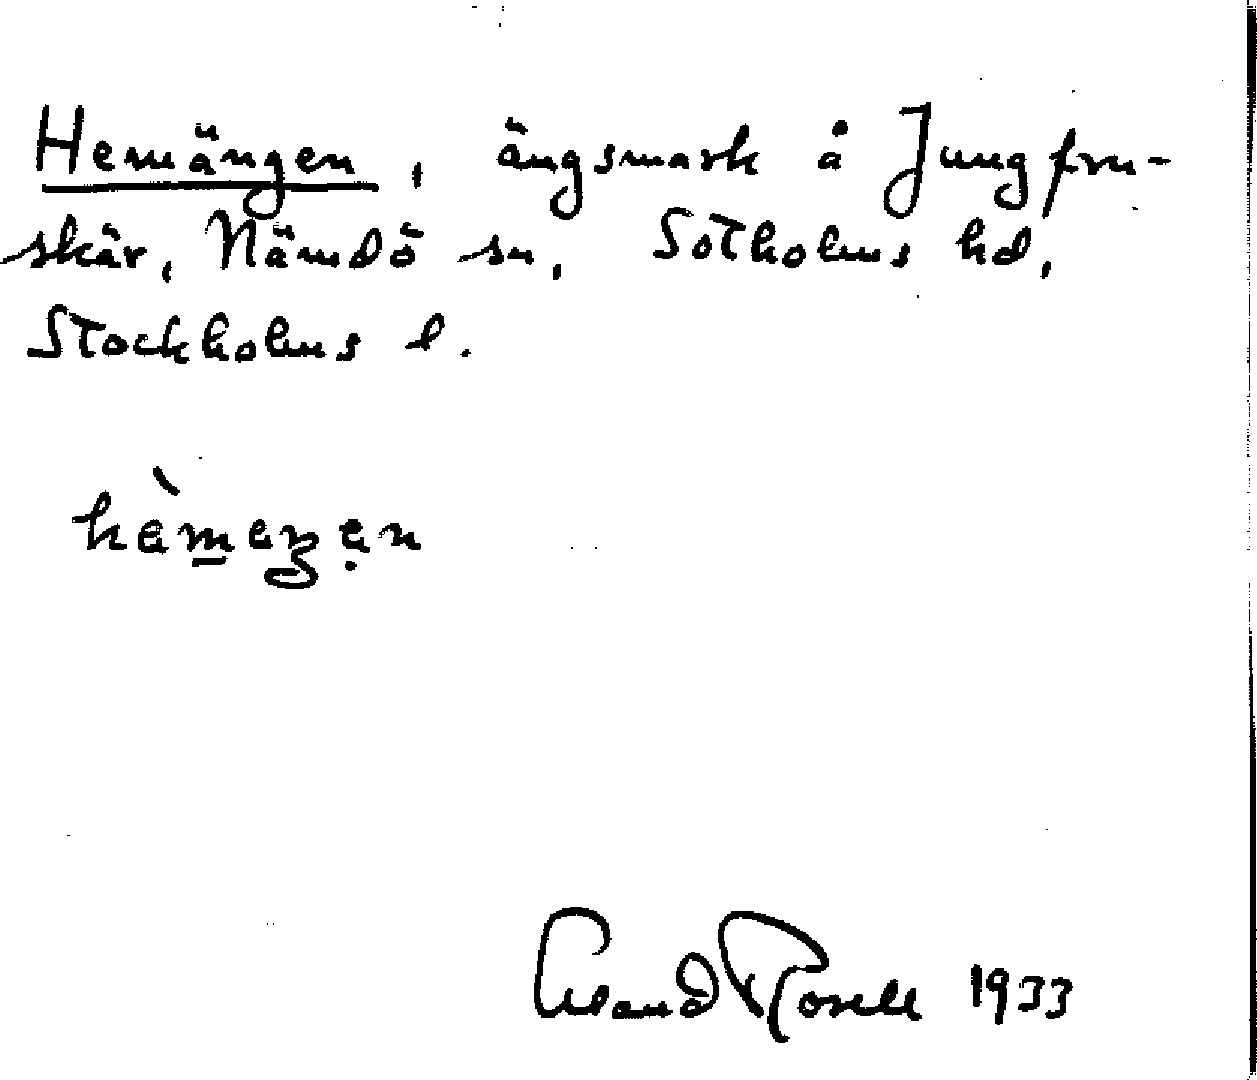 Hemängen, ängsmark å Jungfru-
skär, Nämdö sn, Sotholms hd,
Stockholms l.
Erland Rosell 1933